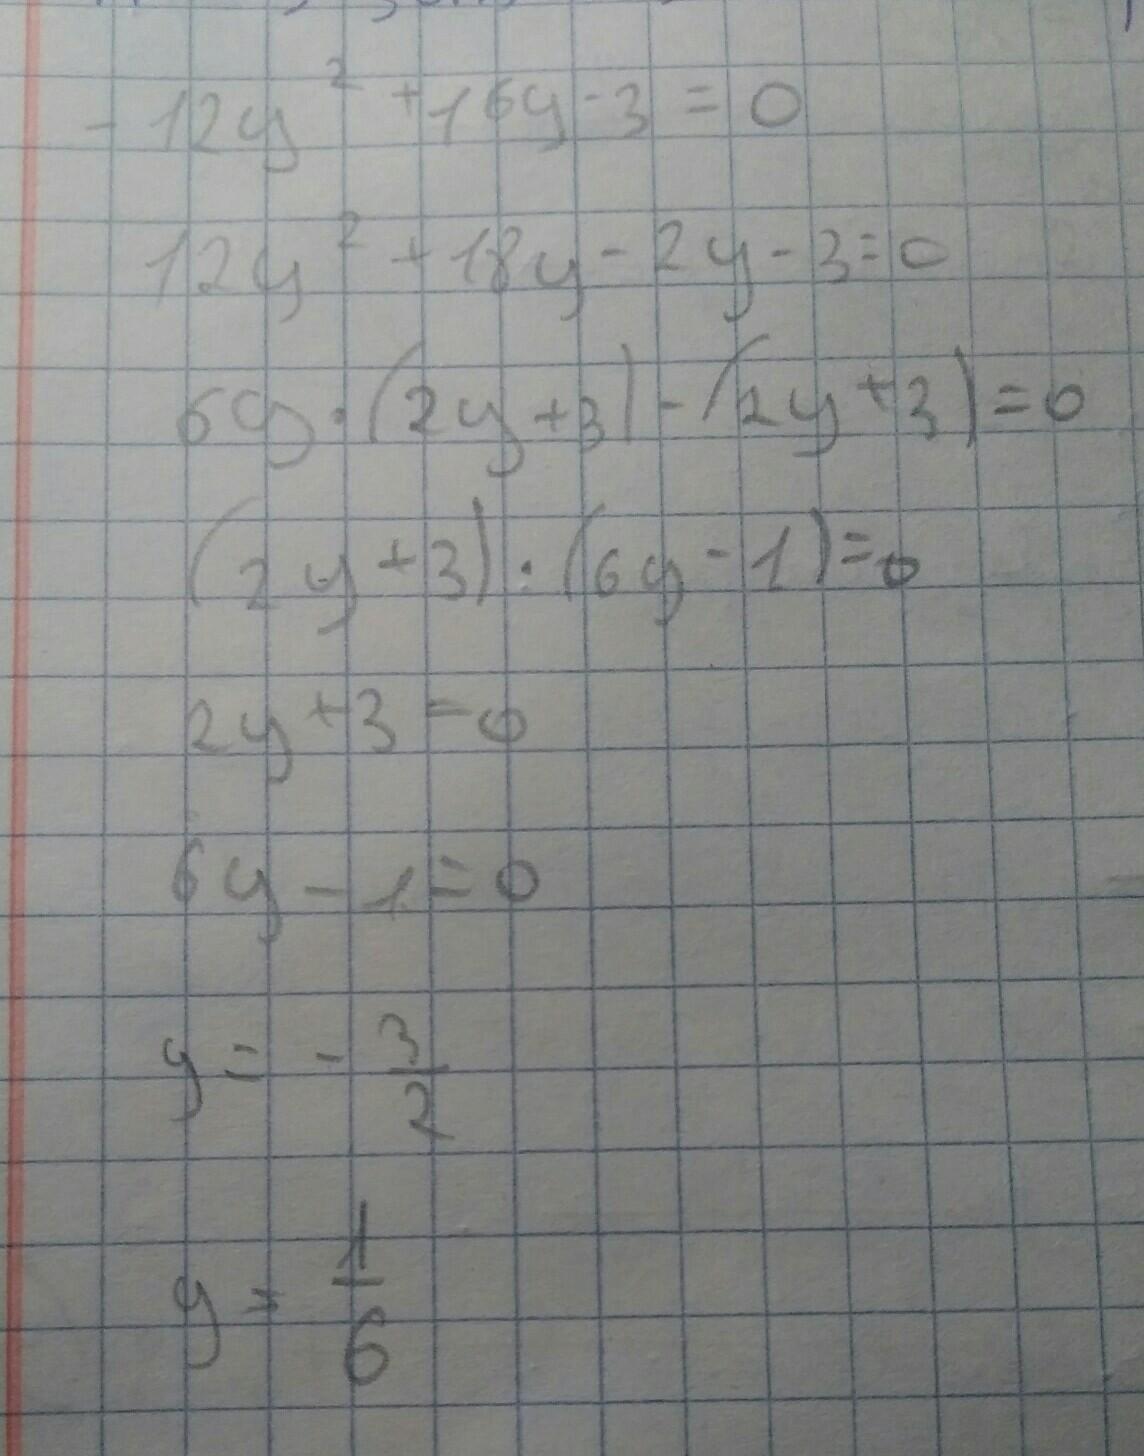 - 12y² + 16y - 3 = 0
12y² + 18y - 2y - 3 = 0
6y · (2y + 3) - (2y + 3) = 0
(2y + 3) · (6y - 1) = 0
2y + 3 = 0
6y - 1 = 0
y = - 3/2
y = 1/6